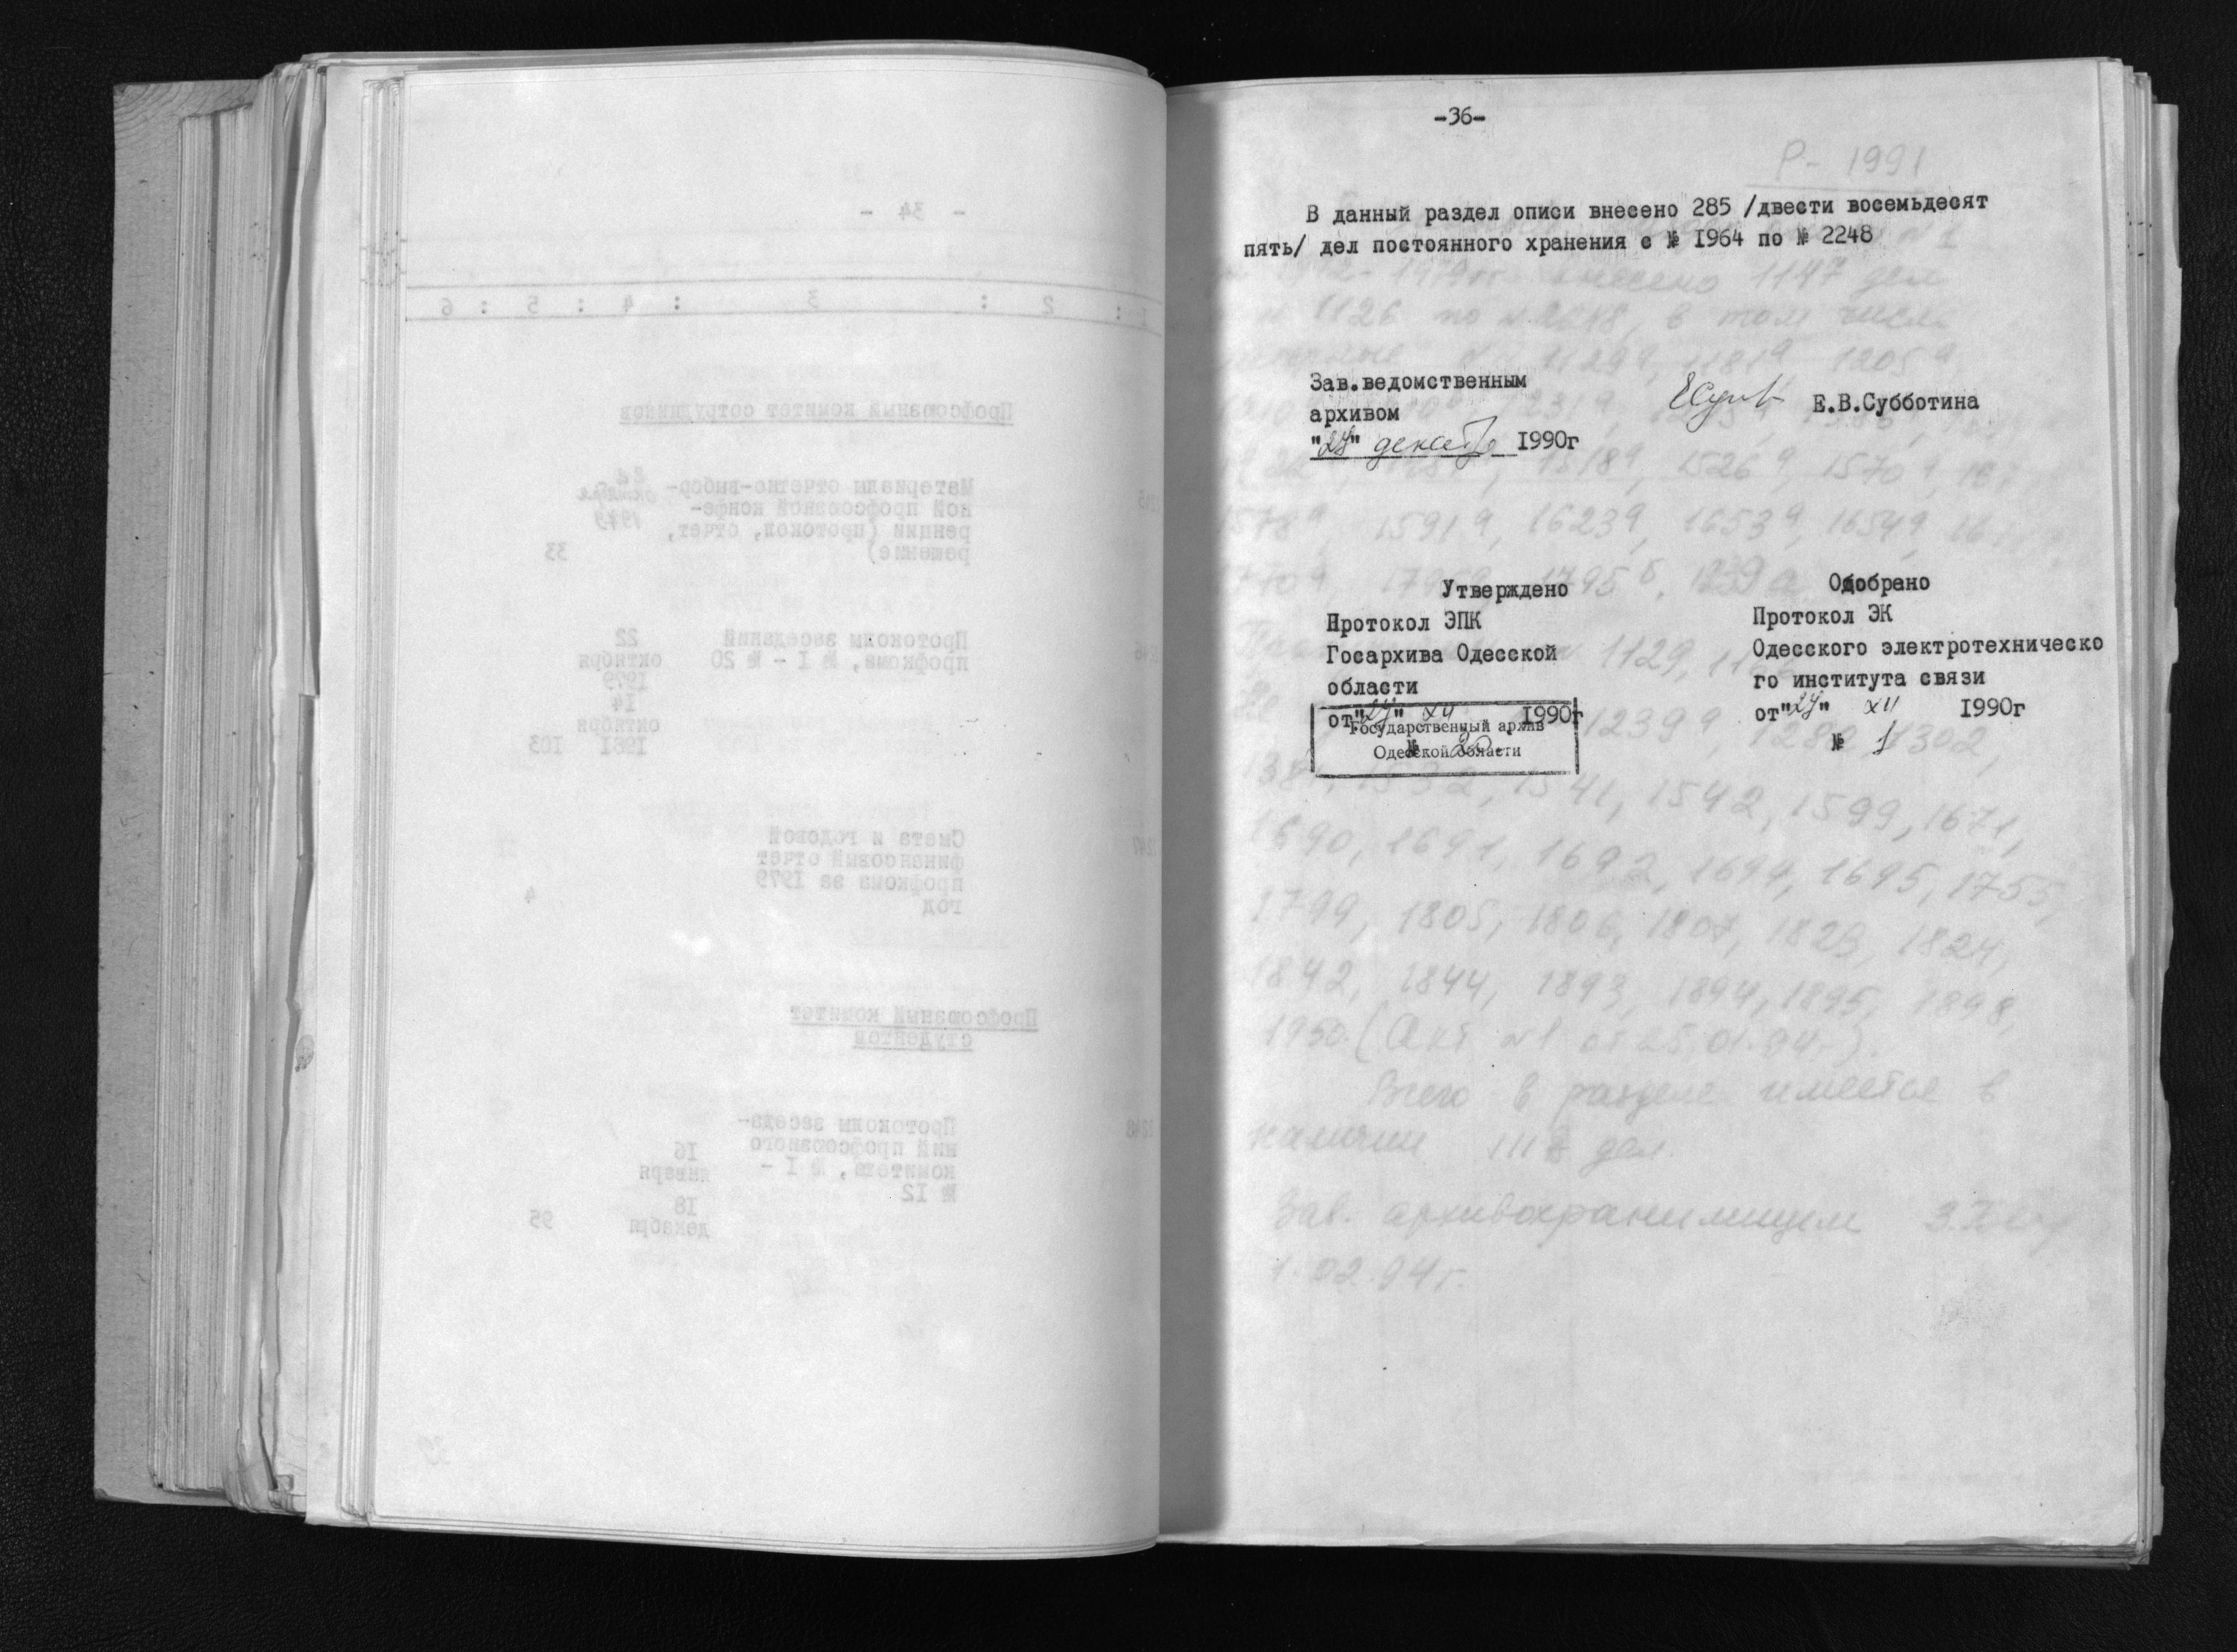 - 34 -
1 : 2 : 3 : 4 : 5 : 6
Профсоюзный комитет сотрудников
Материалы отчетно-выбор-
ной профсоюзной конфе-
ренции (протокол, отчет,
решение)
октября
1979
33
Протоколы заседаний
профкома, № I - № 20
22
октября
1979
14
октября
1981 103
Смета и годовой
финансовый отчет
профкома за 1979
год
4
Профсоюзный комитет
студентом
Протоколы заседа-
ний профсоюзного
комитета, № I -
№ 12
16
января
18
декабря
95
-36-
Р- 1991
В данный раздел описи внесено 285 /двести восемьдесят
пять/ дел постоянного хранения с № I964 по № 2248
внесено 1147 дел
1126 по в том числе
1129а, 1181а, 1205а
Зав.ведомственным
архивом
Е.В.Субботина
"27" декабр 1990г
1518а, 1526а, 1570а
1578а, 1591а, 1623а, 1653а, 1654а
Утверждено
Протокол ЭПК
Госархива Одесской
области
от"27" XII 1990г
№ 20
Государственный архив
Одесской области
Одобрано
Протокол ЭК
Одесского электротехническо
го института связи
от"27" XII 1990г
№ 1
1129,
1239а 1302,
1532, 1541, 1542, 1599, 1671,
1690, 1691, 1692, 1694, 1695, 1755,
1799, 1805, 1806, 1807, 1823, 1824,
1842, 1844, 1893, 1894, 1895, 1898,
1950. (Акт №1 от 25.01.94г.).
Всего в разделе имеется в
наличии дел.
Зав. архивохранилищем
1.02.94г.